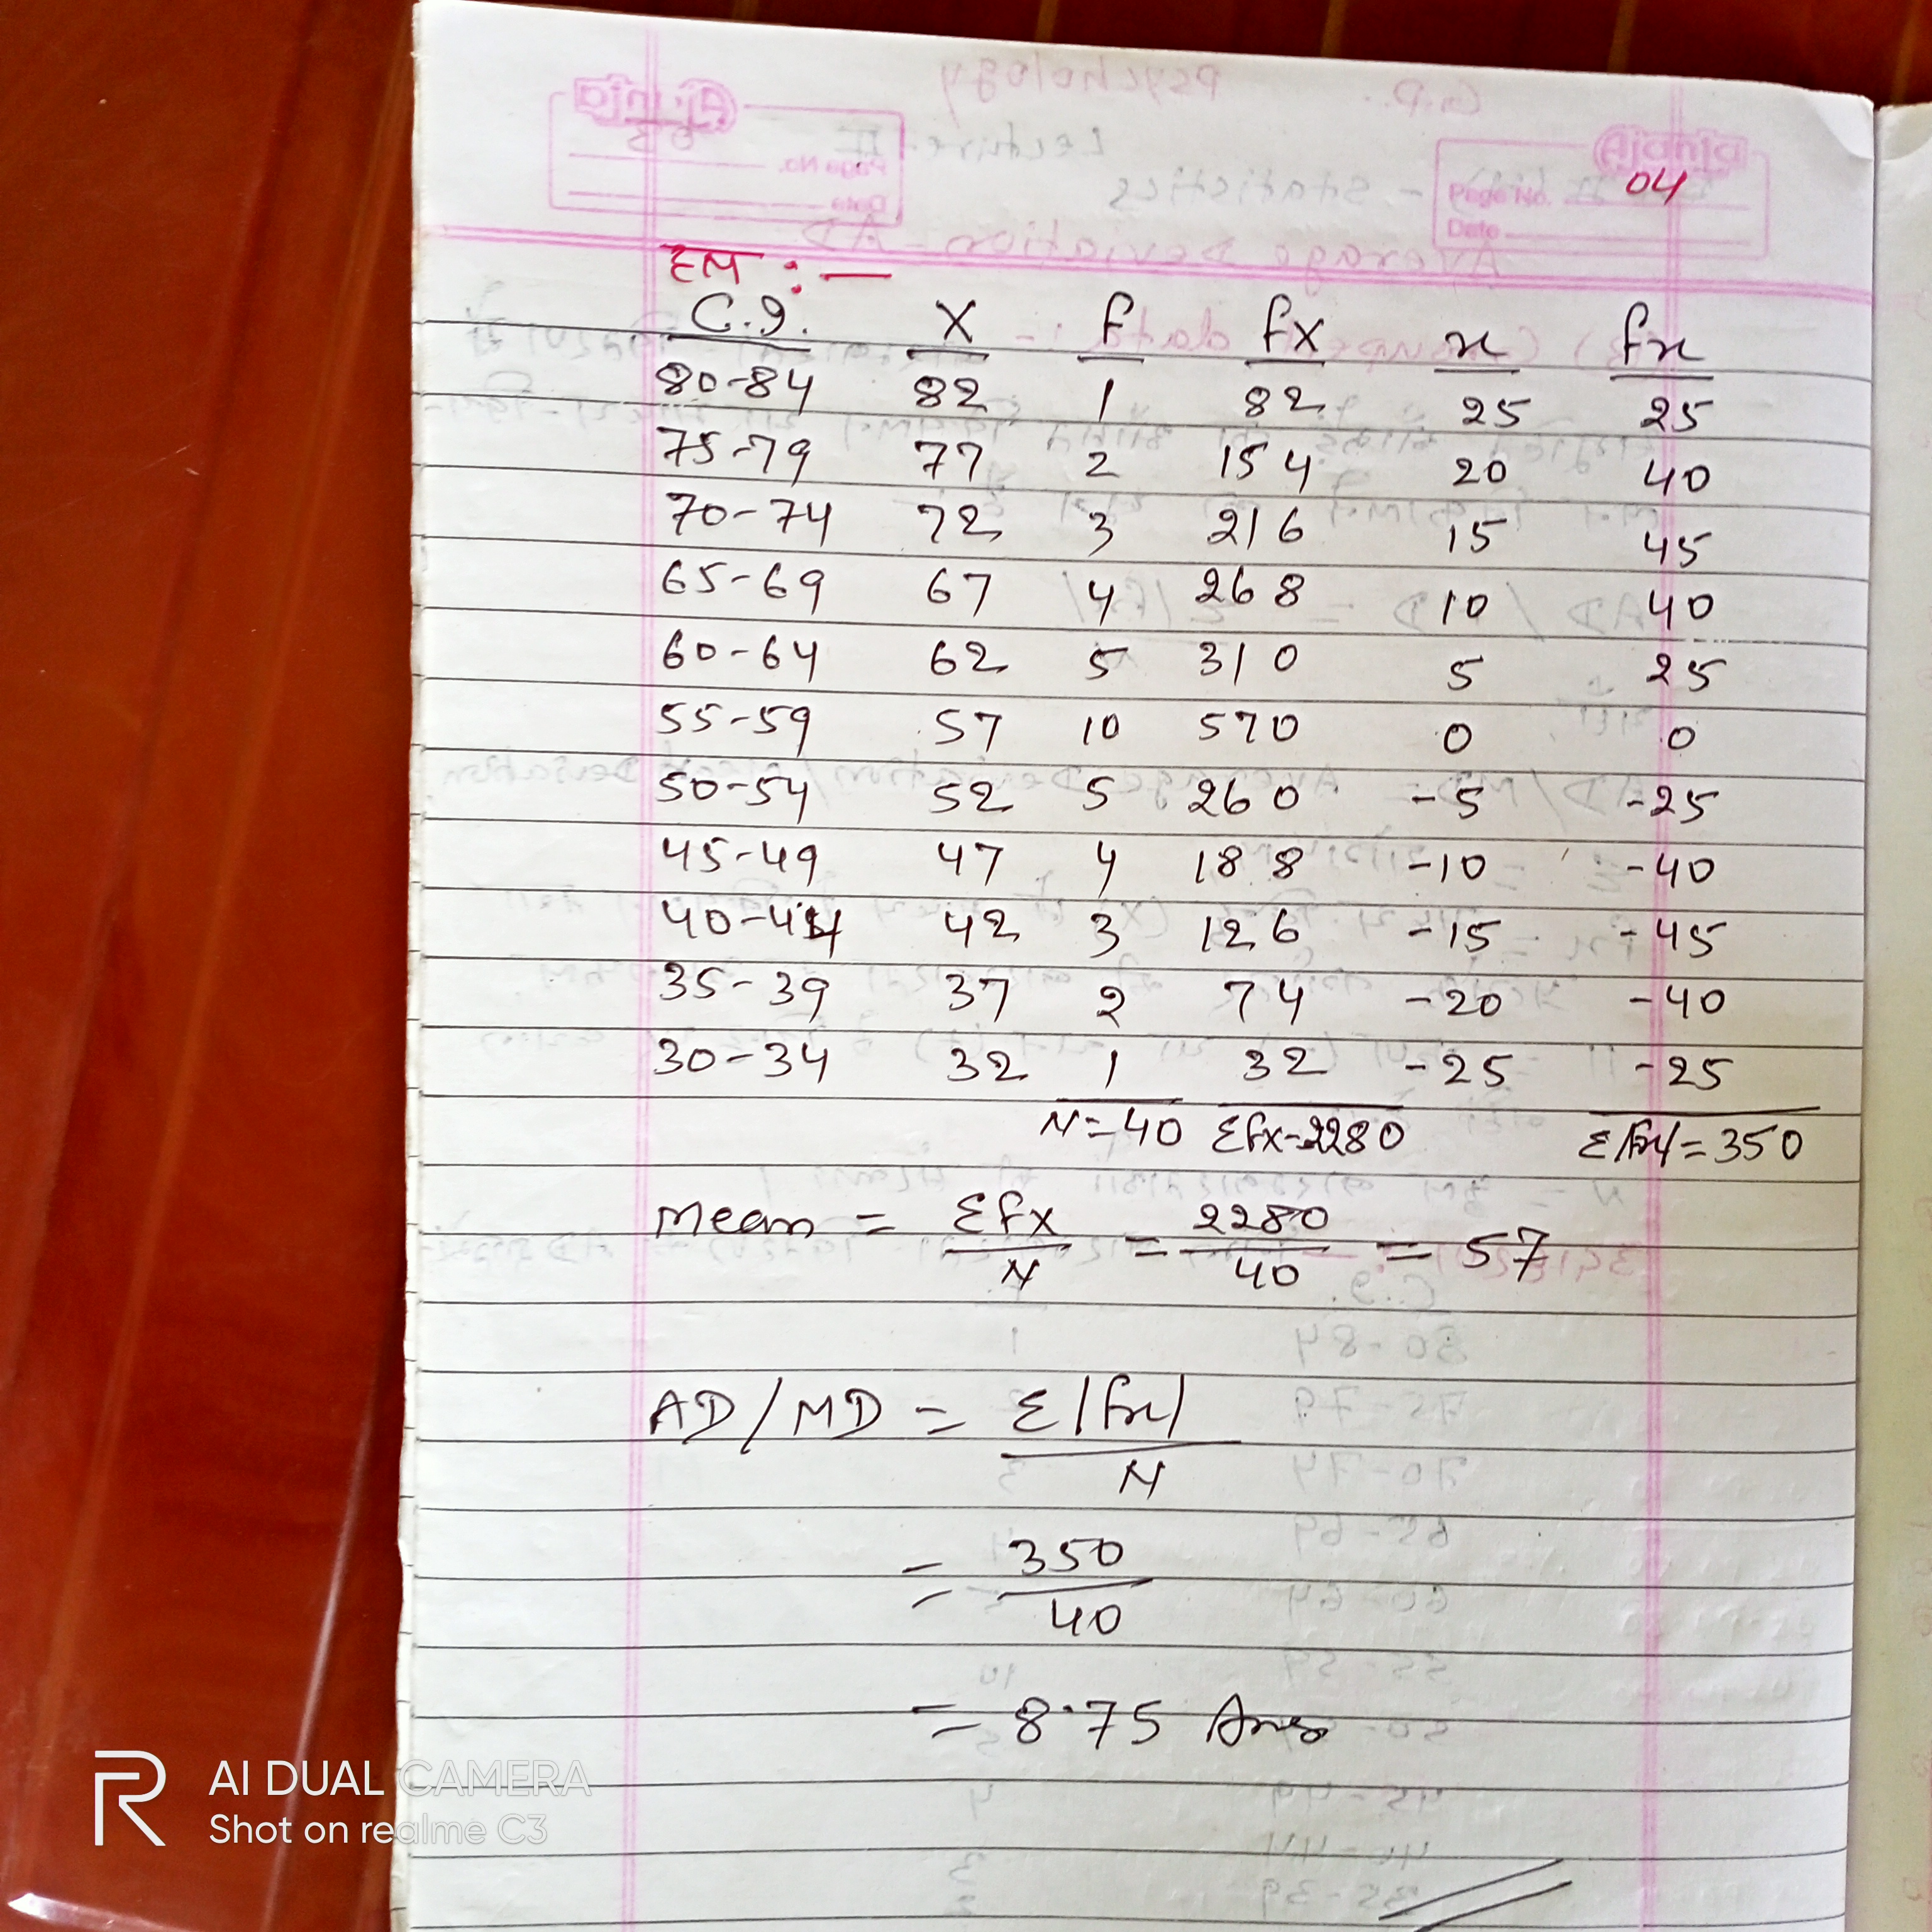 Ajanta
Page No. 04
Date
हल :—
C.I. X f fX x fx
80-84 82 1 82 25 25
75-79 77 2 154 20 40
70-74 72 3 216 15 45
65-69 67 4 268 10 40
60-64 62 5 310 5 25
55-59 57 10 570 0 0
50-54 52 5 260 -5 -25
45-49 47 4 188 -10 -40
40-44 42 3 126 -15 -45
35-39 37 2 74 -20 -40
30-34 32 1 32 -25 -25
N=40 Σfx-2280 Σ|fx|=350
Mean = Σfx/N = 2280/40 = 57
AD/MD = Σ|fx|
N
= 350
40
= 8.75 Ans
AI DUAL CAMERA
Shot on realme C3